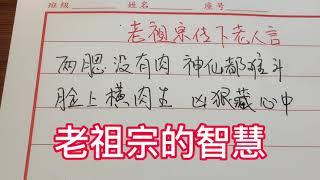 班级 姓名 座号
老祖宗传下老人言
两腮没有肉 神仙都难斗
脸上横肉生 凶狠藏心中
老祖宗的智慧